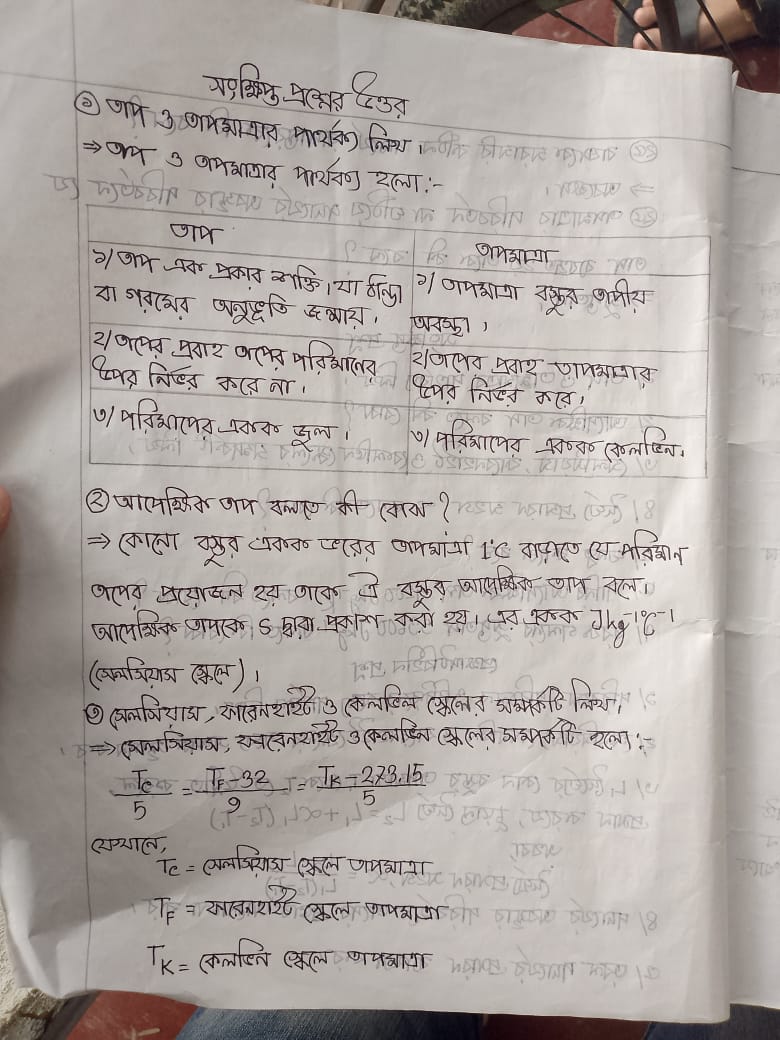 সংক্ষিপ্ত প্রশ্নের উত্তর
① তাপ ও তাপমাত্রার পার্থক্য লিখ।
⇒ তাপ ও তাপমাত্রার পার্থক্য হলো:-
তাপ
তাপমাত্রা
১/ তাপ এক প্রকার শক্তি, যা ঠান্ডা
বা গরমের অনুভূতি জন্মায়।
১/ তাপমাত্রা বস্তুর তাপীয়
অবস্থা।
২/ তাপের প্রবাহ তাপের পরিমানের
উপর নির্ভর করে না।
২/ তাপের প্রবাহ তাপমাত্রার
উপর নির্ভর করে।
৩/ পরিমাপের একক জুল।
৩/ পরিমাপের একক কেলভিন।
② আপেক্ষিক তাপ বলতে কী বোঝ?
⇒ কোনো বস্তুর একক ভরের তাপমাত্রা 1°C বাড়াতে যে পরিমান
তাপের প্রয়োজন হয় তাকে ঐ বস্তুর আপেক্ষিক তাপ বলে।
আপেক্ষিক তাপকে S দ্বারা প্রকাশ করা হয়। এর একক Jkg⁻¹°C⁻¹
(সেলসিয়াস স্কেলে)।
③ সেলসিয়াস, ফারেনহাইট ও কেলভিন স্কেলের সম্পর্কটি লিখ।
⇒ সেলসিয়াস, ফারেনহাইট ও কেলভিন স্কেলের সম্পর্কটি হলো:-
Tc/5 = (TF-32)/9 = (TK-273.15)/5
যেখানে,
Tc = সেলসিয়াস স্কেলে তাপমাত্রা
TF = ফারেনহাইট স্কেলে তাপমাত্রা
TK = কেলভিন স্কেলে তাপমাত্রা